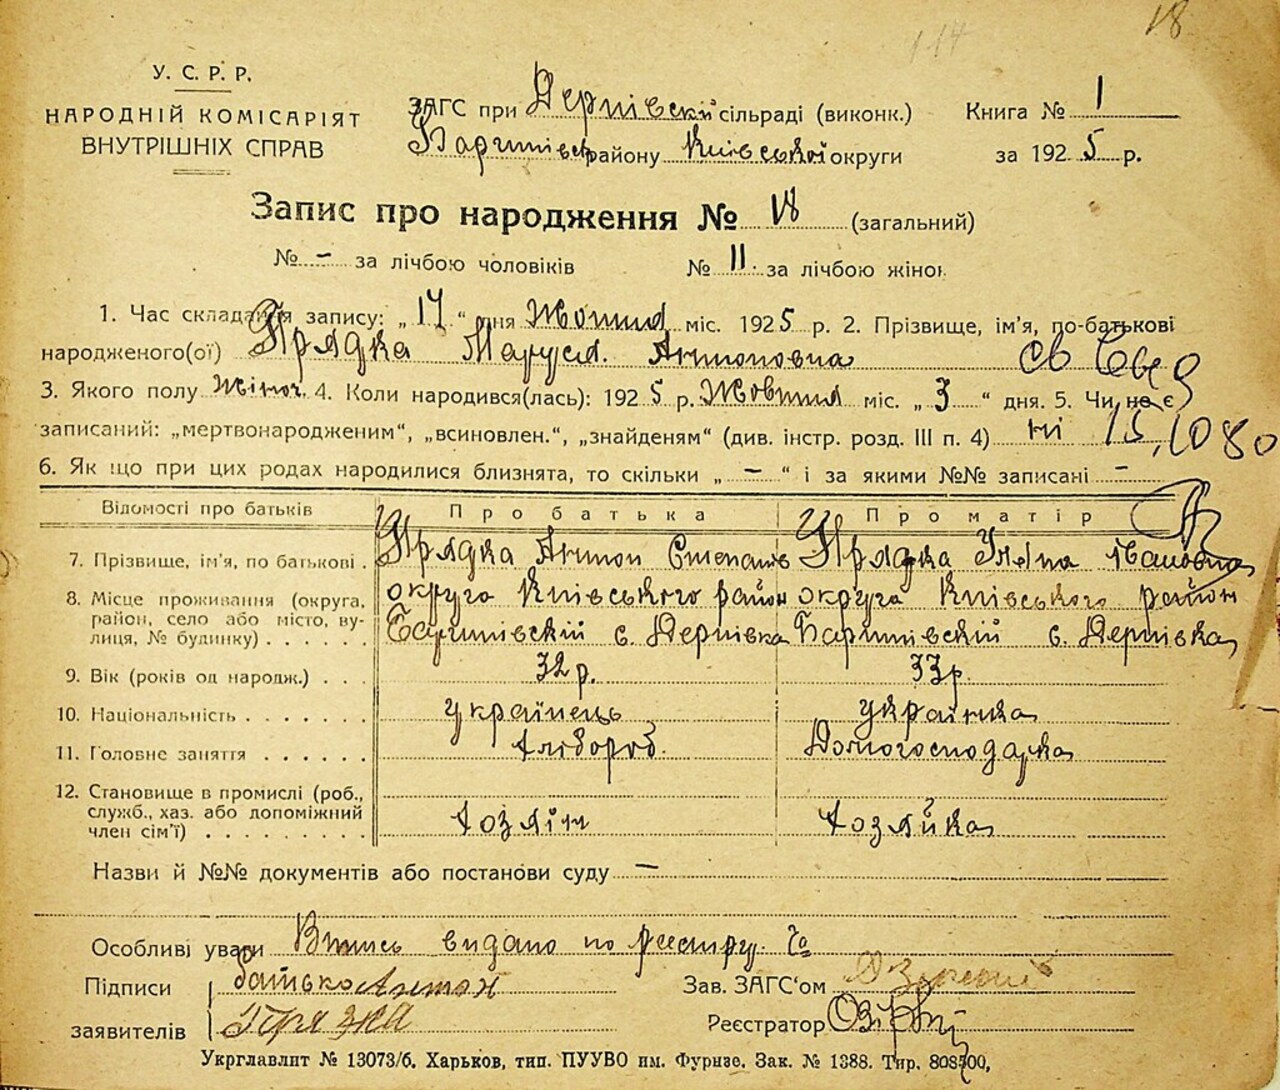 18
114
У. С. Р. Р.
НАРОДНІЙ КОМІСАРІЯТ
ВНУТРІШНІХ СПРАВ
ЗАГС при Дернівскій сільраді (виконк.)
Книга № 1
району Київської округи
за 1925 р.
Запис про народження № 18 (загальний)
№ - за лічбою чоловіків № 11. за лічбою жінок
1. Час складання запису: „17“ дня Жовтня міс. 1925 р. 2. Прізвище, ім'я, по-батькові
народженого(ої) Прядка Маруся. Антоновна св
3. Якого полу жіноч. 4. Коли народився(лась): 1925 р. Жовтня міс. „3“ дня. 5. Чи не є
записаний: „мертвонародженим“, „всиновлен.“, „знайденям“ (див. інстр. розд. III п. 4) ні 15,10 80
6. Як що при цих родах народилися близнята, то скільки „-“ і за якими №№ записані -
Відомості про батьків Про батька Про матір
7. Прізвище, ім'я, по батькові . Прядка Антон Степанів Прядка Уляна Івановна
8. Місце проживання (округа, округа Київського район округа Київського район
район, село або місто, ву-
лиця, № будинку) . . . . . Баришівскій с. Дернівка Баришівскій с. Дернівка
9. Вік (років од народж.) . . . 32 р. 33 р.
10. Національність . . . . . . . українець українка
11. Головне заняття . . . . . . Хлібороб. Домогосподарка
12. Становище в промислі (роб.,
служб., хаз. або допоміжний
член сім'ї) . . . . . . . . . хозяїн хозяйка
Назви й №№ документів або постанови суду -
Особливі уваги Витись видано по реєстру.
Підписи батько Антон
Зав. ЗАГС'ом
заявителів Прядка
Реєстратор
Укрглавлит № 13073/б. Харьков, тип. ПУУВО им. Фурнзе. Зак. № 1388. Тир. 808500,